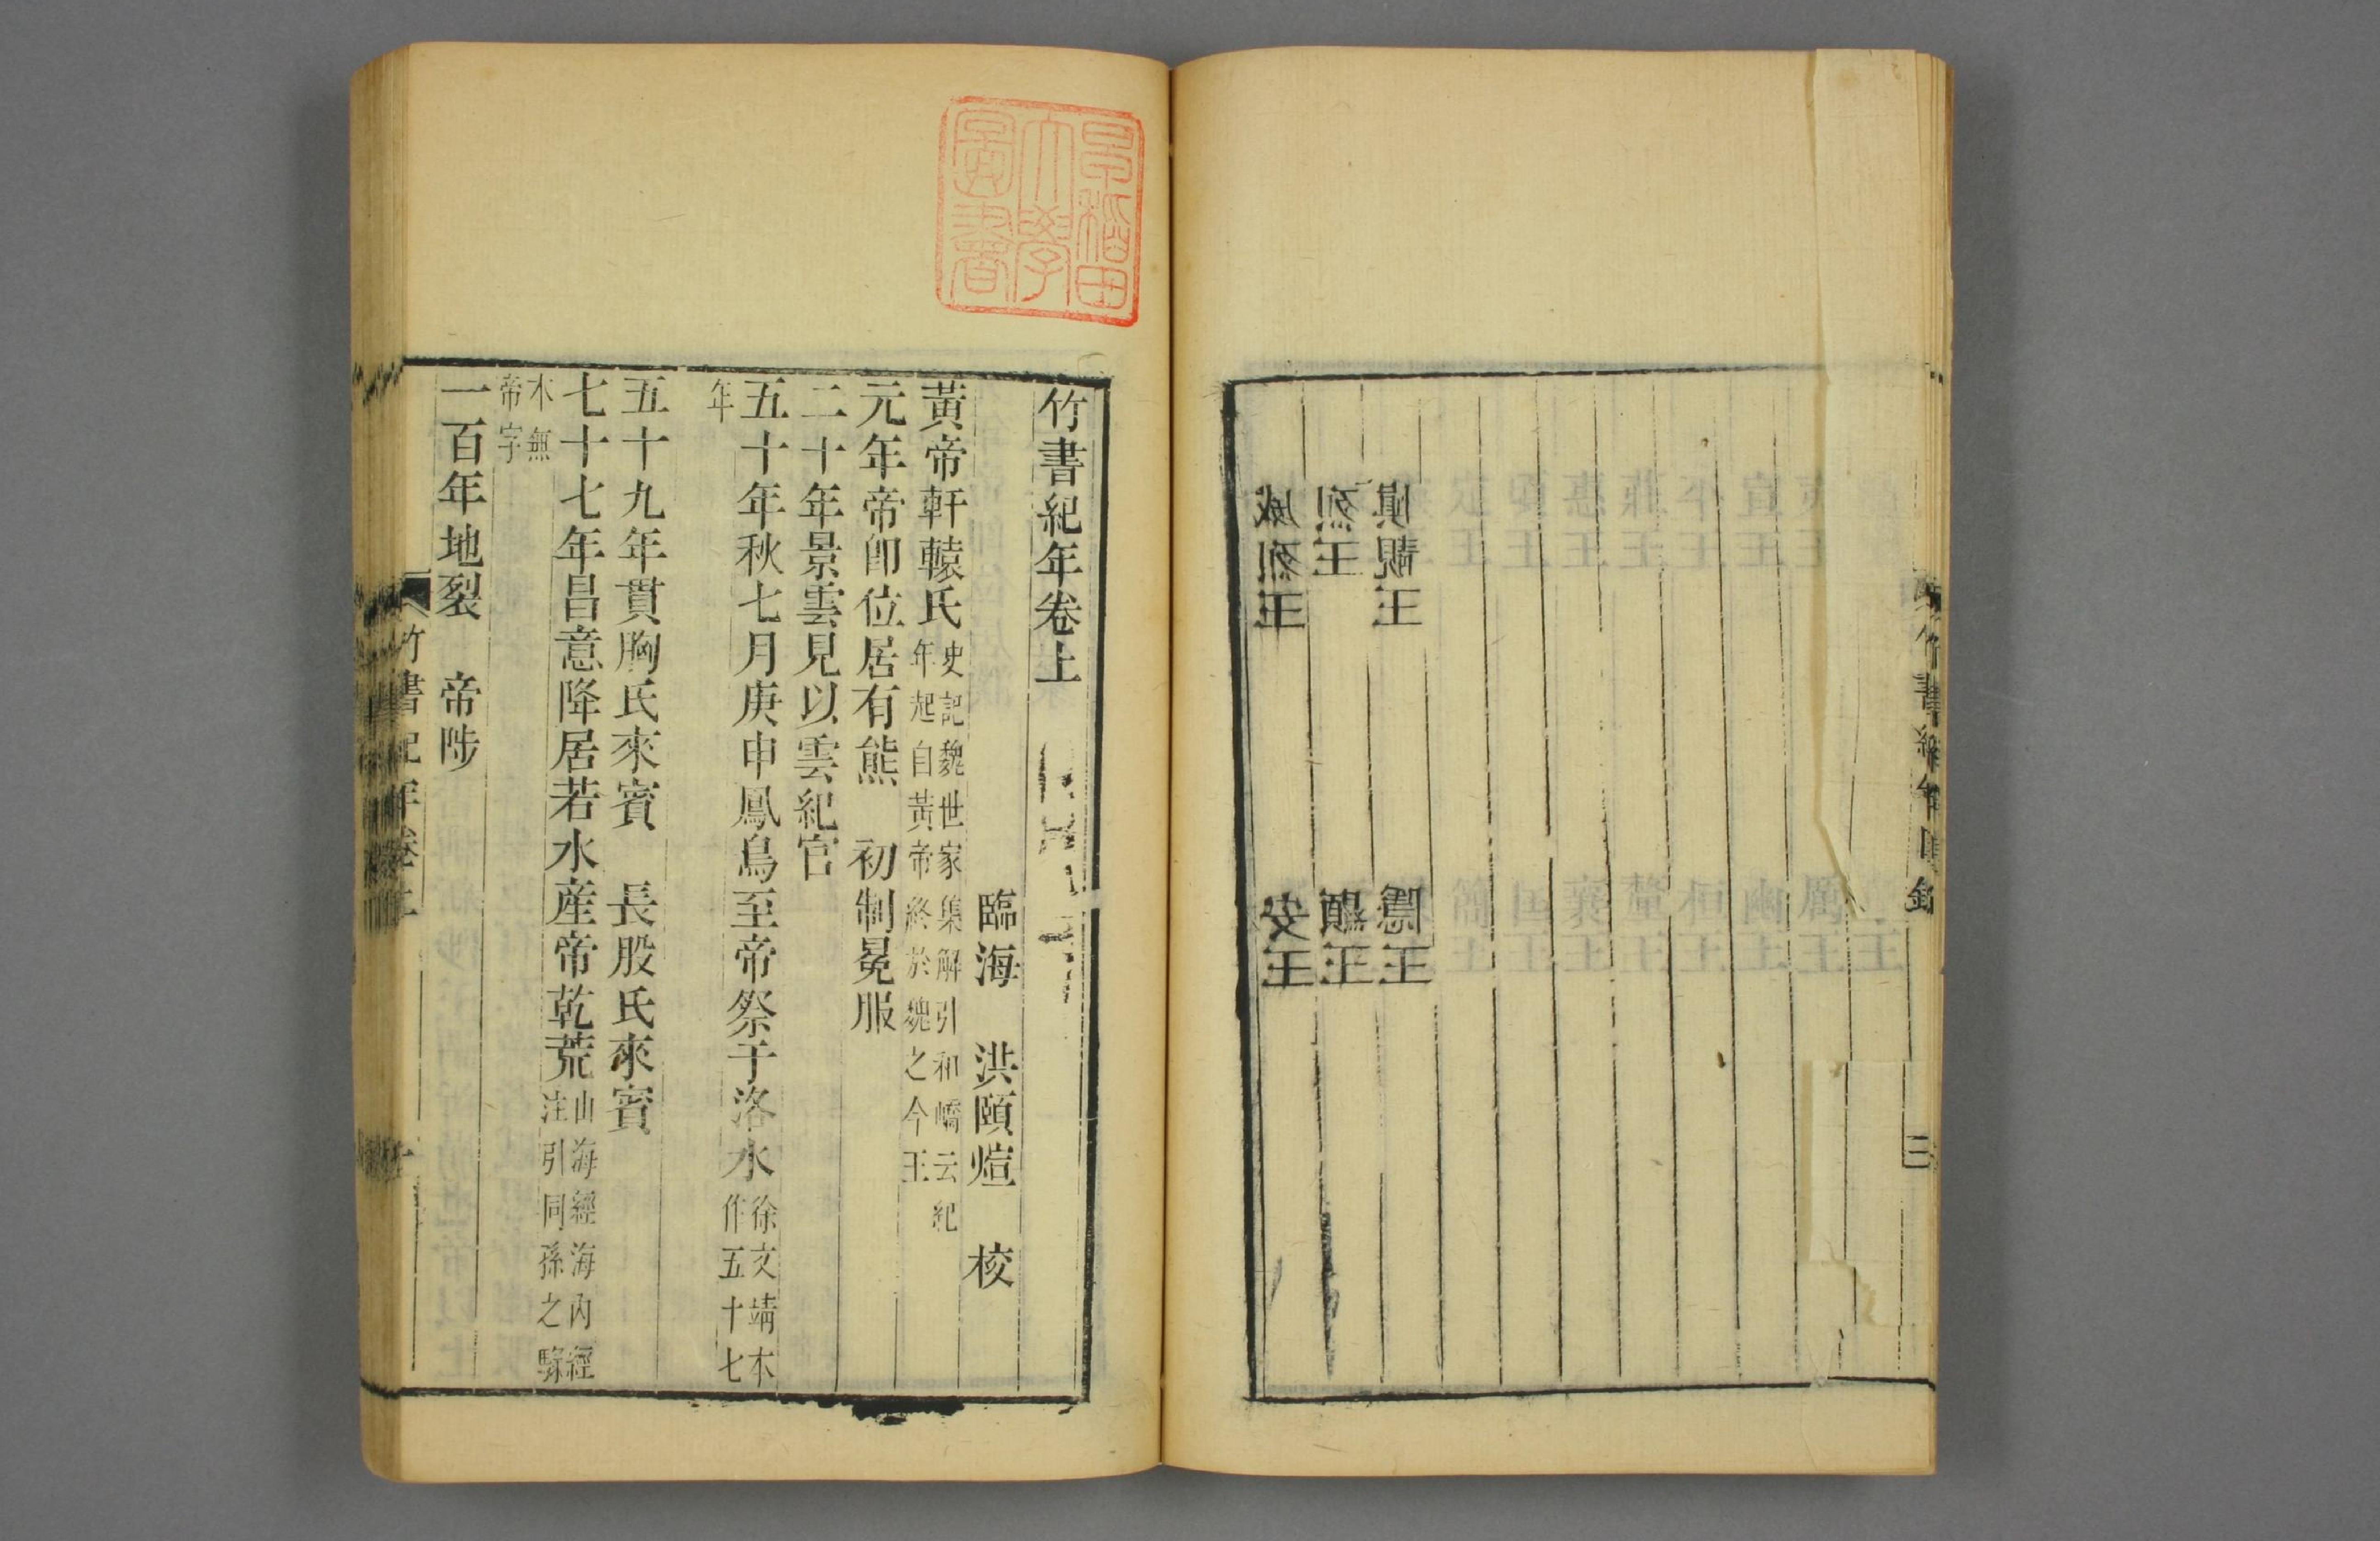 竹書紀年目錄
三
慎靚王
隱王
烈王
顯王
威烈王
安王
早稻田
大學
圖書
竹書紀年卷上
臨海 洪頤煊 校
黃帝軒轅氏
史記魏世家集解引和嶠云紀
年起自黃帝終於魏之今王
元年帝卽位居有熊 初制冕服
二十年景雲見以雲紀官
五十年秋七月庚申鳳鳥至帝祭于洛水
徐文靖本
作五十七
年
五十九年貫胸氏來賓 長股氏來賓
七十七年昌意降居若水產帝乾荒
山海經海內經
注引同孫之騄
本無
帝字
一百年地裂 帝陟
竹書紀年卷上
一